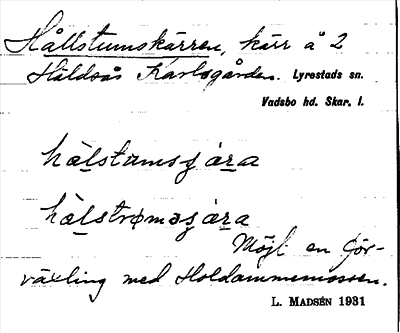 Hållstumskärren, kärr å 2
Håldsås Karlsgården. Lyrestads sn.
Vadsbo hd. Skar. l.
hålstumsʃära
hålstrømøsʃära
Möjl. en för-
växling med Holdammemossen.
L. MADSÉN 1931